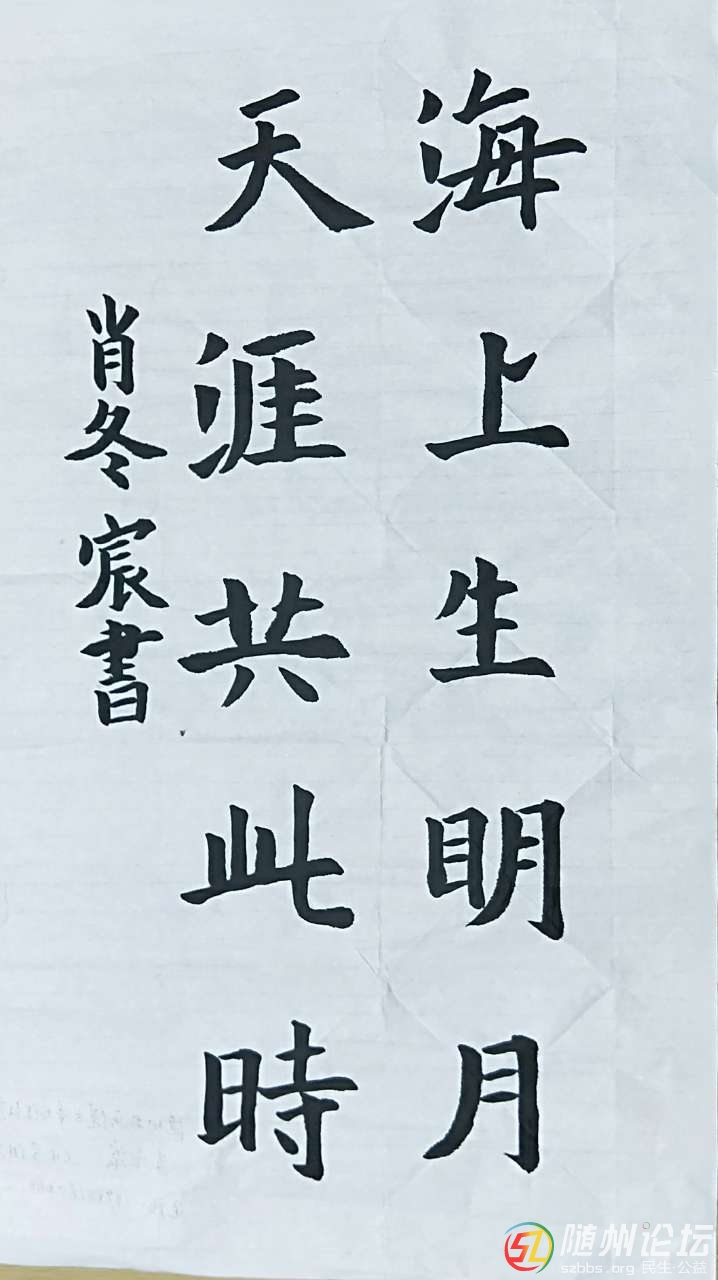 海上生明月
天涯共此時
肖冬宸書
随州论坛
szbbs.org 民生·公益